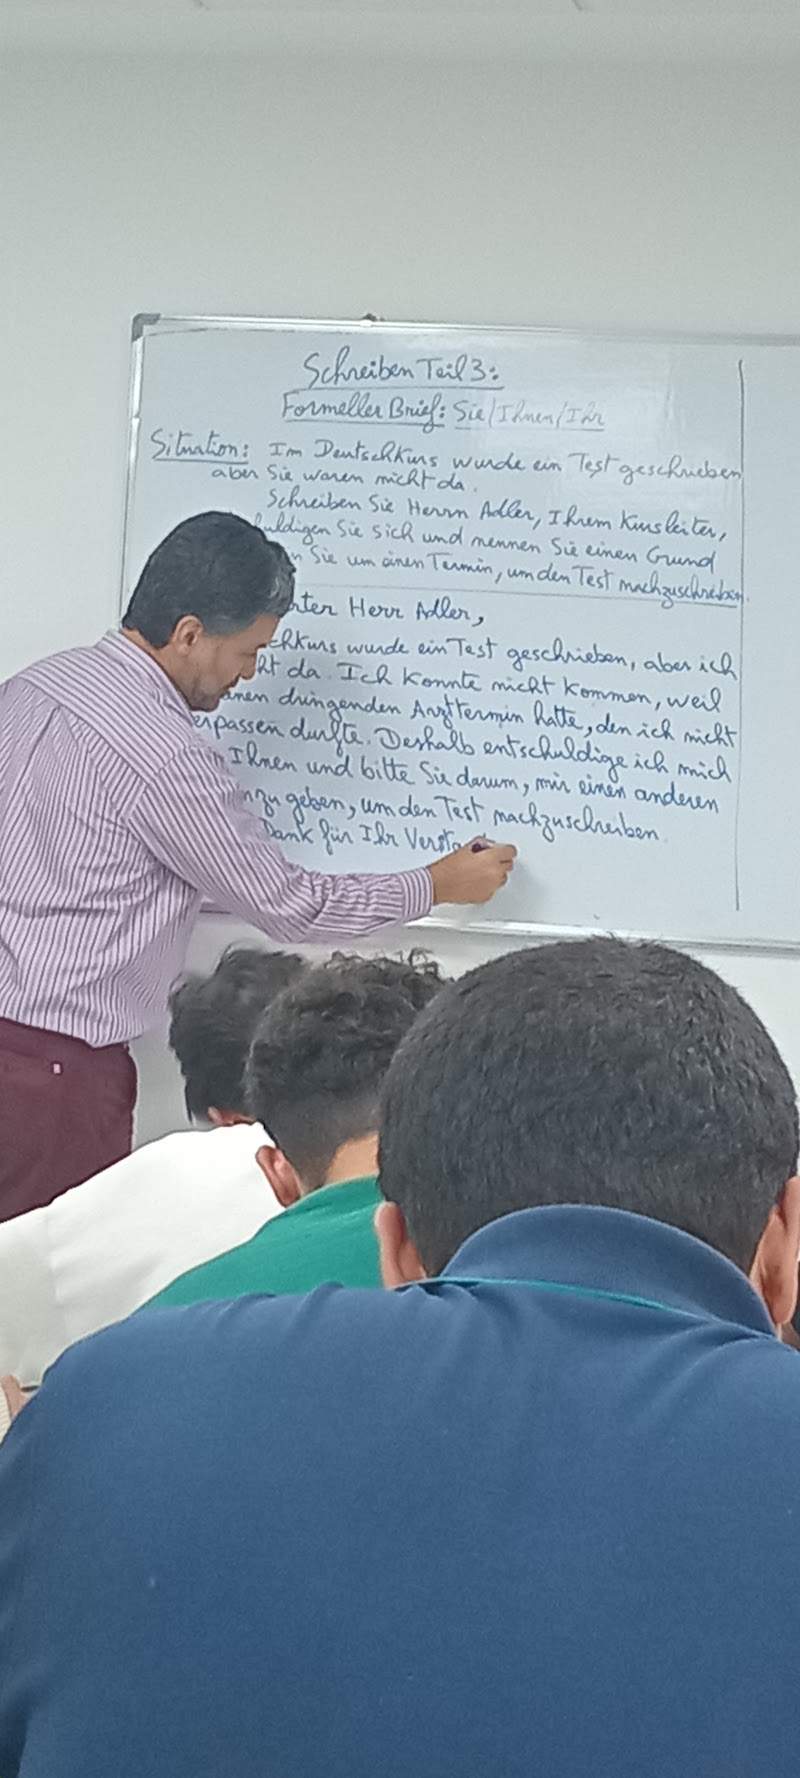 Schreiben Teil 3:
Formeller Brief: Sie/Ihnen/Ihr
Situation: Im Deutschkurs wurde ein Test geschrieben
aber Sie waren nicht da.
Schreiben Sie Herrn Adler, Ihrem Kursleiter,
huldigen Sie sich und nennen Sie einen Grund
n Sie um einen Termin, um den Test nachzuschreiben.
rter Herr Adler,
chkurs wurde ein Test geschrieben, aber ich
ht da. Ich konnte nicht kommen, weil
inen dringenden Arzttermin hatte, den ich nicht
erpassen durfte. Deshalb entschuldige ich mich
Ihnen und bitte Sie darum, mir einen anderen
zu geben, um den Test nachzuschreiben.
Dank für Ihr Versta